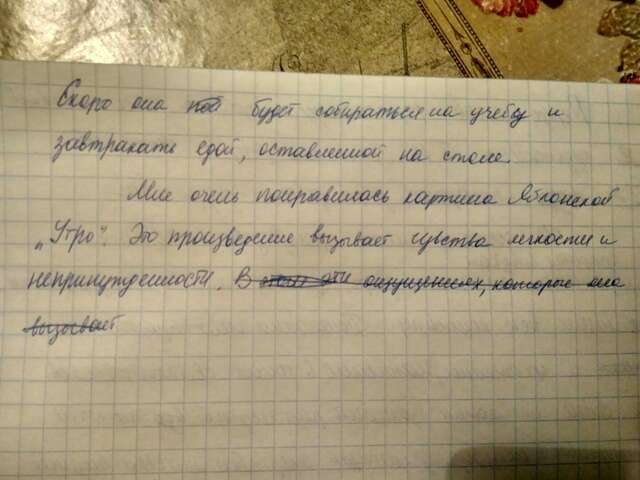 Скоро она пой будет собираться на учебу и
завтракать едой, оставленной на столе.
Мне очень понравилась картина Яблонской
„Утро". Это произведение вызывает чувства легкости и
непринужденности. В этом эти ощущениях, которые она
вызывает